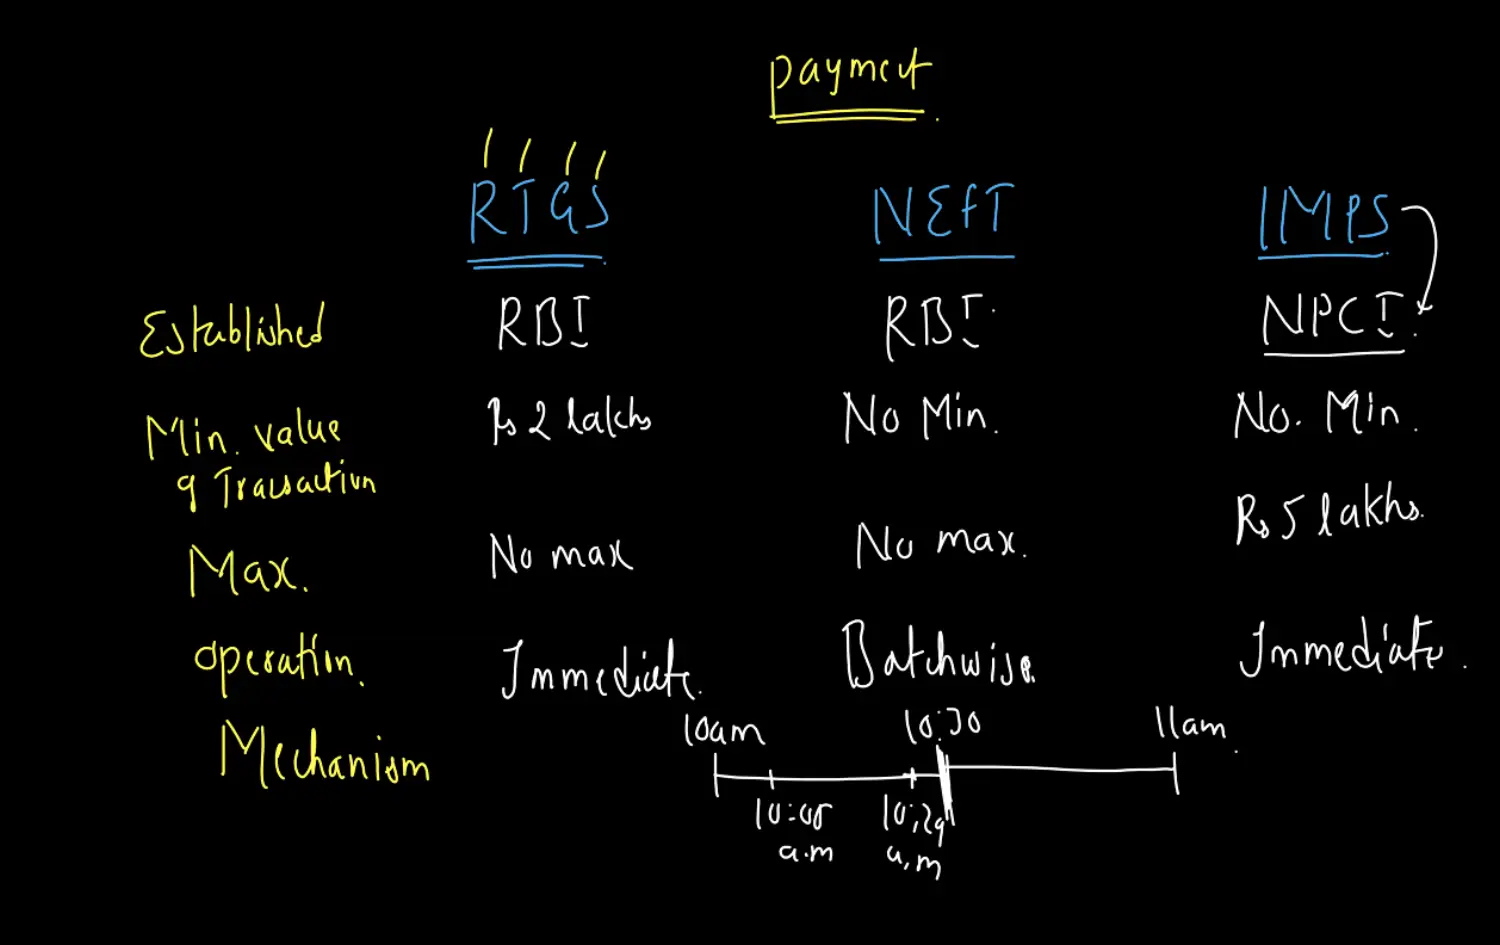 payment
RTGS NEFT IMPS
Established RBI RBI NPCI
Min. value Rs 2 lakhs No Min. No. Min.
of Transaction
Max. No max No max. Rs 5 lakhs.
operation. Immediate. Batchwise. Immediate.
Mechanism
10am 10:30 11am
10:05 10:29
a.m a.m